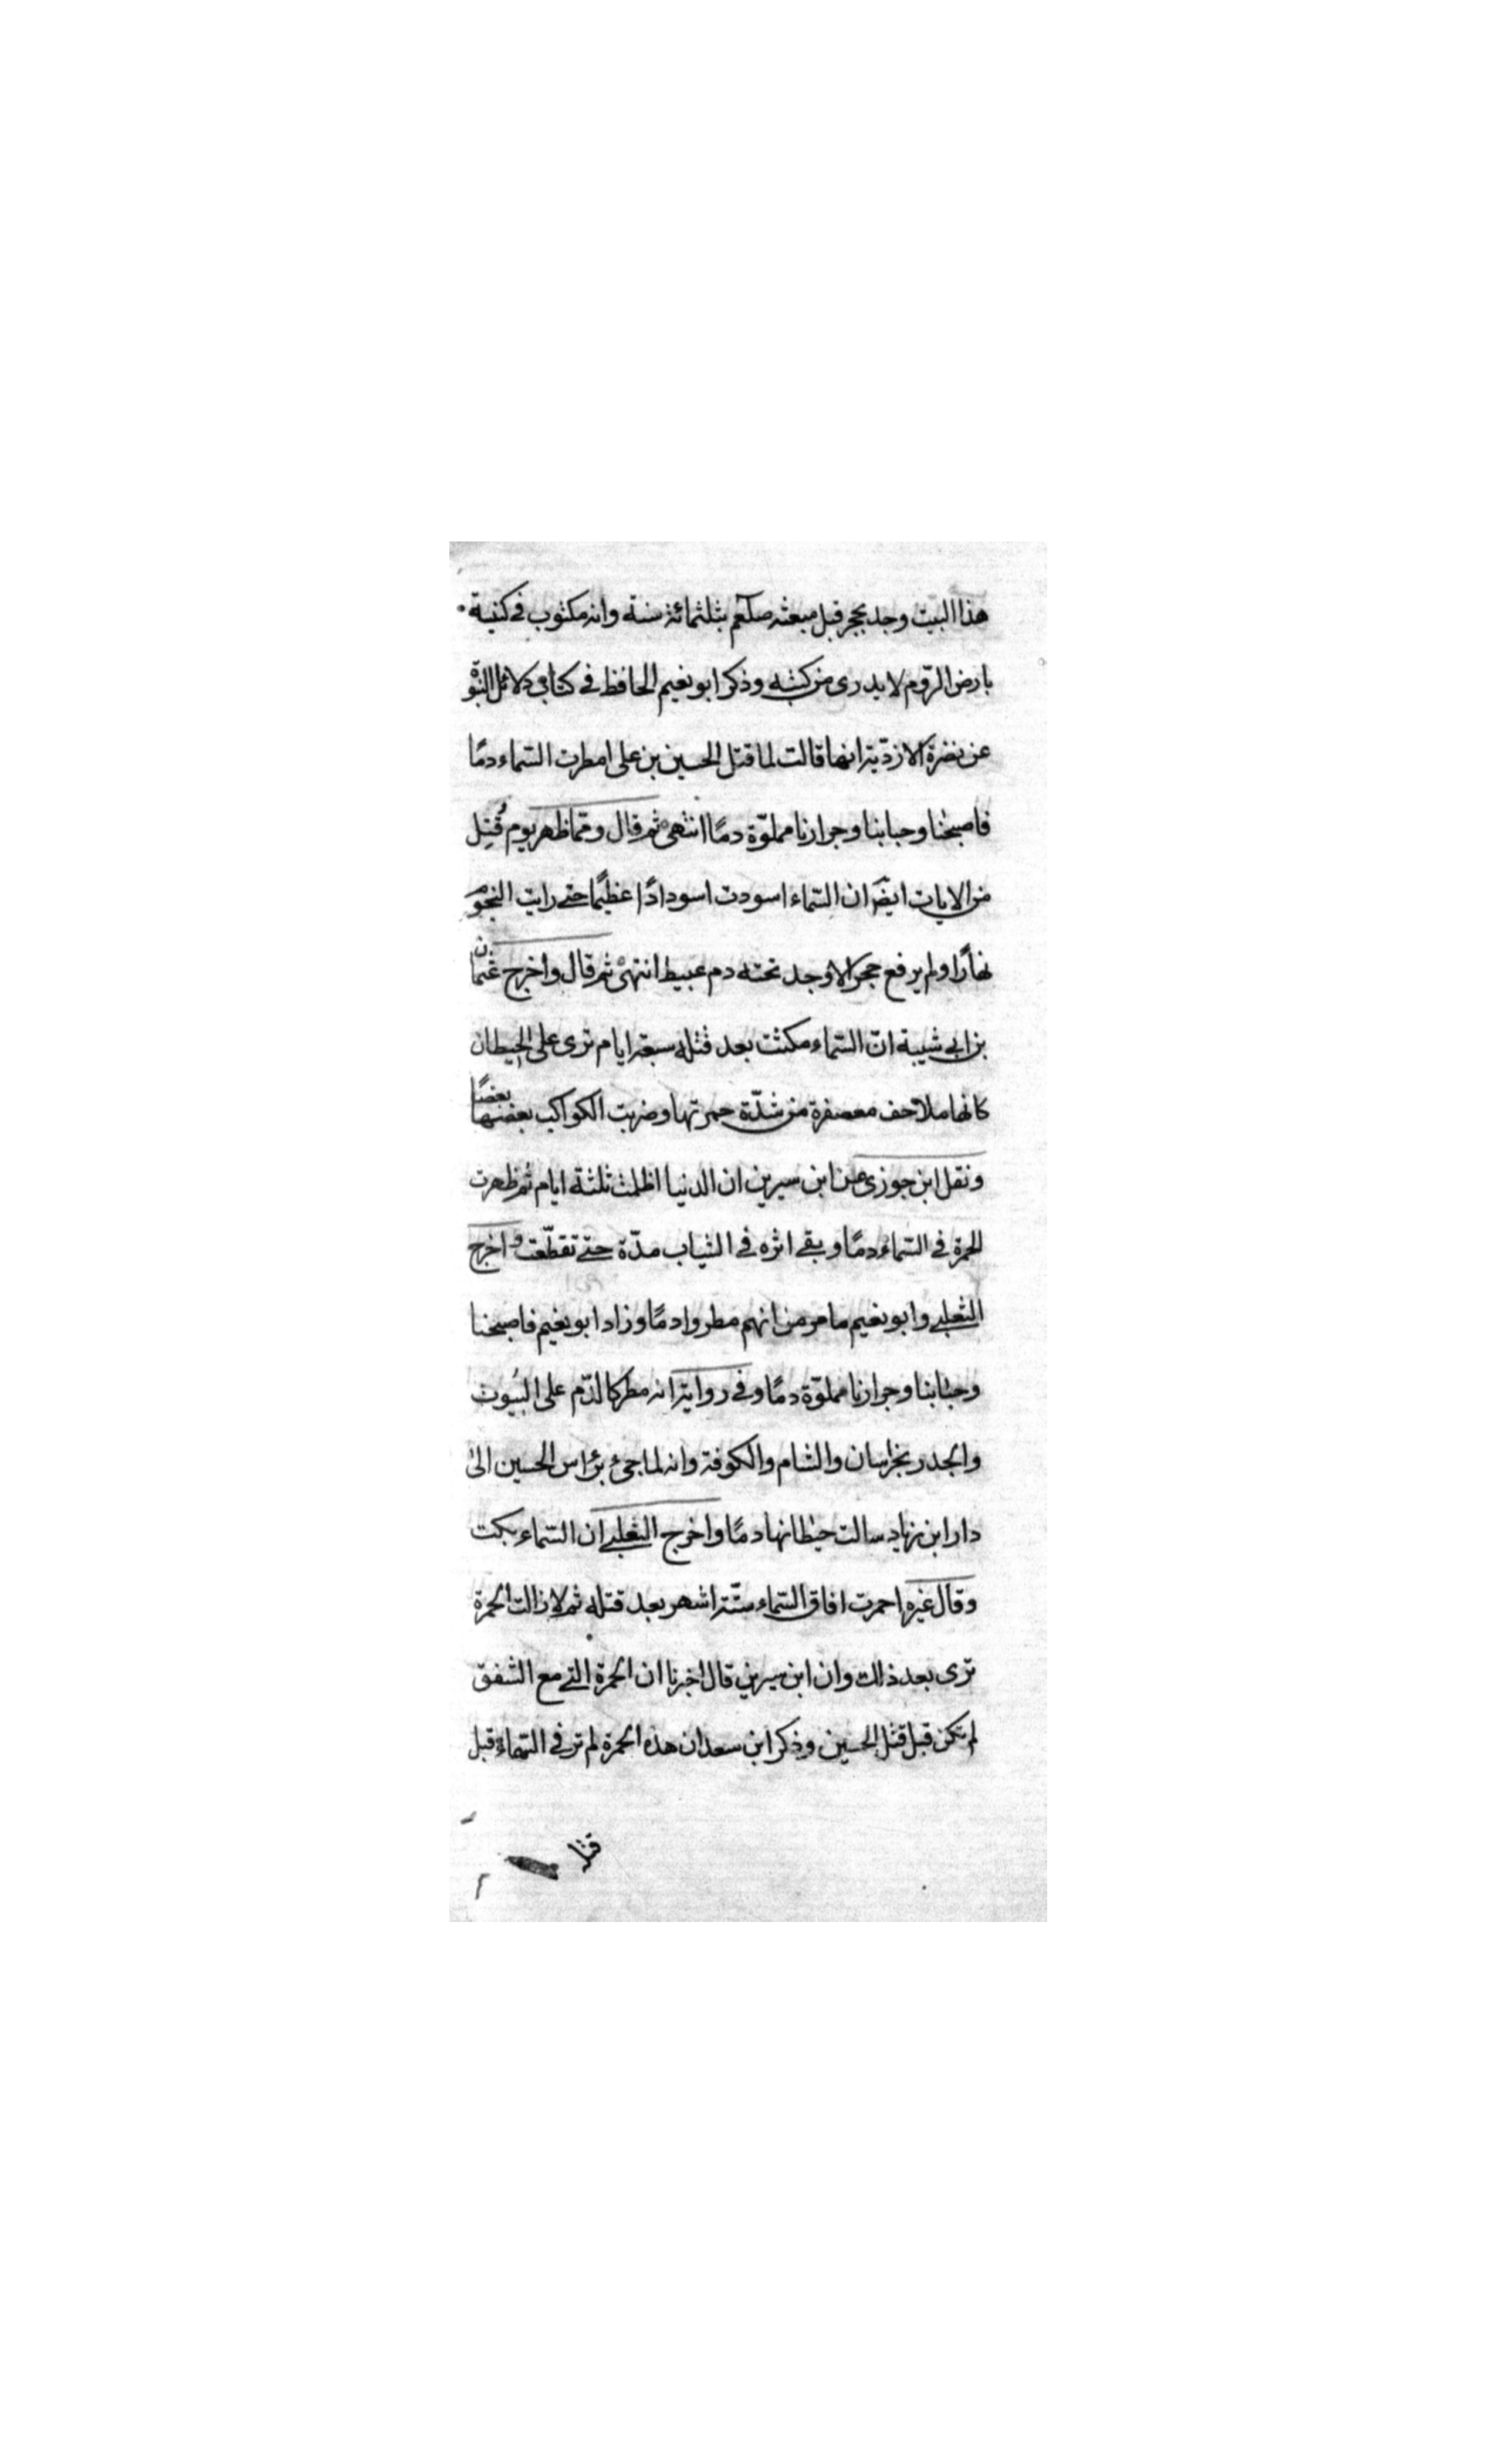 هذا البيت وجد بحجر قبل مبعثه صلعم بثلثمائة سنة وانه مكتوب في كنيسة
بارض الروم لا يدرى من كتبه وذكر ابو نعيم الحافظ في كتاب دلائل النبوة
عن نضرة الازديّة انها قالت لما قتل الحسين بن على امطرت السّماء دمًا
فاصبحنا وحبابنا وجرارنا مملوّة دمًا انتهى ثم قال وممّا ظهر يوم قُتِل
من الايات ايضَ ان السّماء اسودت اسودادًا عظيمًا حتى رايت النجوم
نهارًا ولم يرفع حجر الا وجد تحته دم عبيط انتهى ثم قال واخرج عثمان
بن ابي شيبة انّ السّماء مكثت بعد قتله سبعة ايام ترى على الحيطان
كانها ملاحف معصفرة من شدّة حمرتها وضربت الكواكب بعضها بعضًا
ونقل ابن جوزى عن ابن سيرين ان الدنيا اظلمت ثلثة ايام ثم ظهرت
الحمرة في السّماء دمًا وبقى اثره في الثياب مدّة حتى تقطّعت واخرج
الثعلبي وابو نعيم ما مر من انهم مطروا دمًا وزاد ابو نعيم فاصبحنا
وحبابنا وجرارنا مملوّة دمًا وفي رواية انه مطر كالدّم على البيوت
والجدر بخراسان والشام والكوفة وانه لما جئ برأس الحسين الى
دار ابن زياد سالت حيطانها دمًا واخرج الثعلبي ان السّماء بكت
وقال غيره احمرت افاق السّماء ستّة اشهر بعد قتله ثم لا زالت الحمرة
ترى بعد ذلك وان ابن سيرين قال اخبرنا ان الحمرة التى مع الشفق
لم تكن قبل قتل الحسين وذكر ابن سعد ان هذه الحمرة لم تر في السّماء قبل
قتل